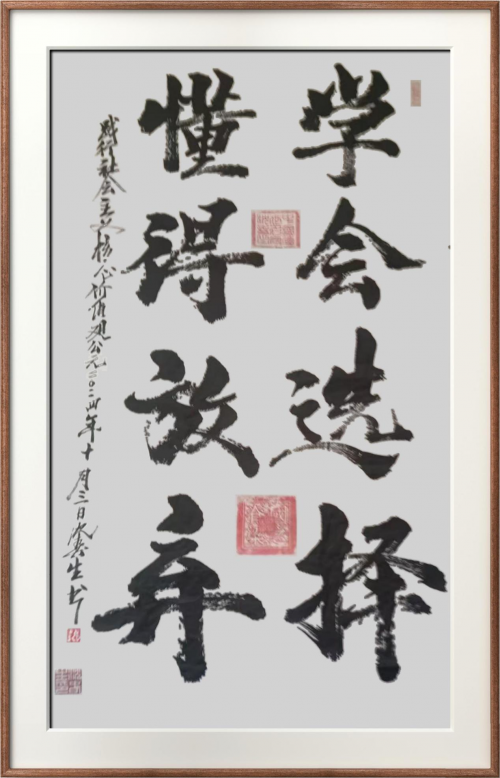 学会选择
懂得放弃
践行社会主义核心价值观公元二〇二四年十月三日